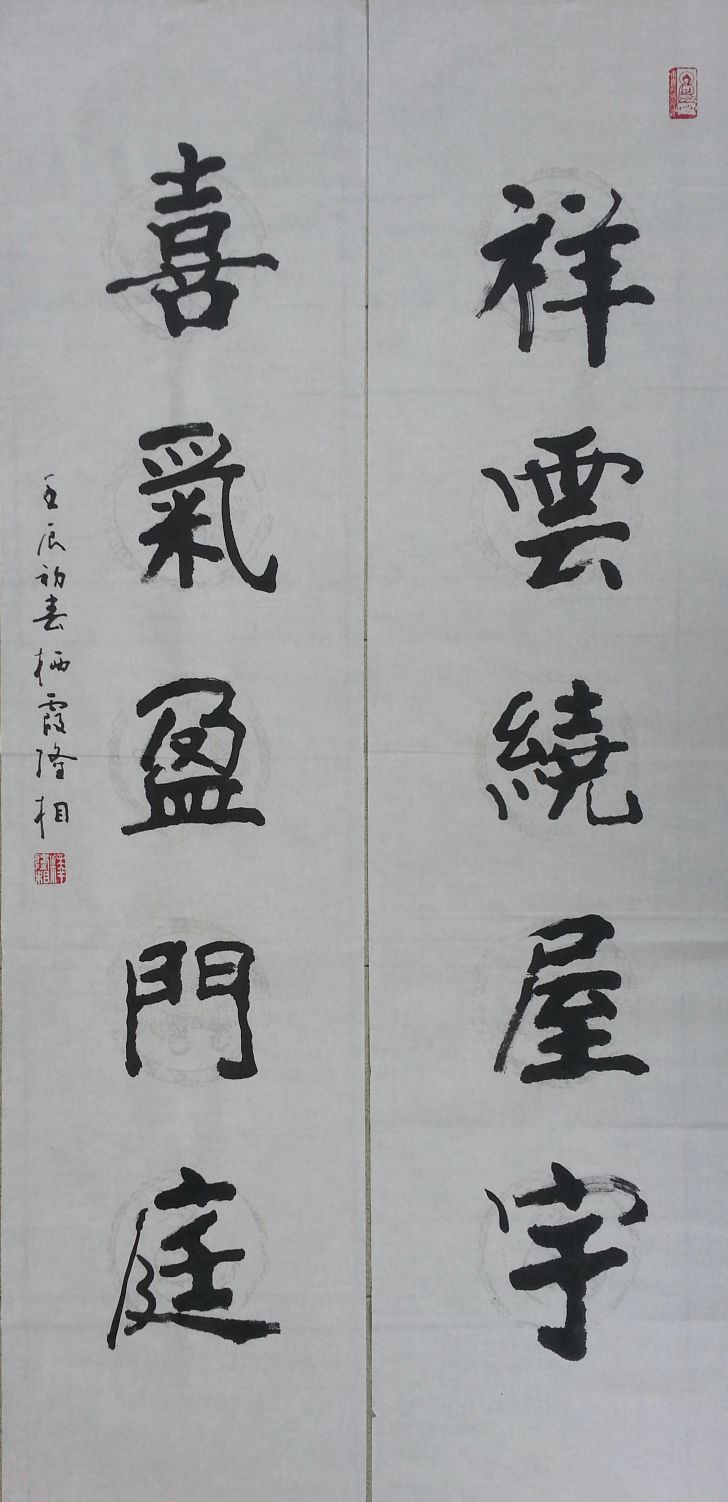 祥雲繞屋宇
喜氣盈門庭
壬辰初春栖霞隆相